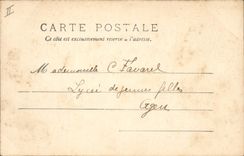 II
CARTE POSTALE
Ce côté est exclusivement réservé à l'adresse.
Mademoiselle C. Favarel
Lycée de jeunes filles
Agen